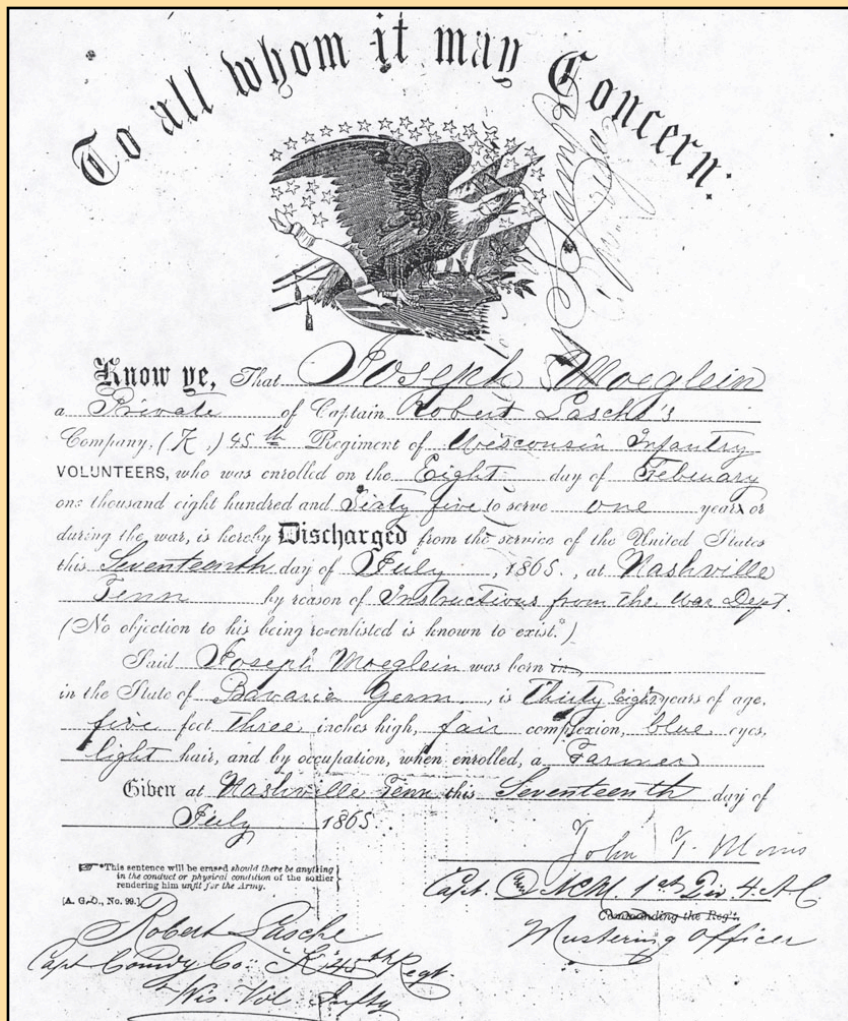 To all whom it may Concern:
Know ye, That Joseph Moeglein
a Private of Captain Robert Lasche's
Company, (K,) 45th Regiment of Wisconsin Infantry
VOLUNTEERS, who was enrolled on the Eight day of February
one thousand eight hundred and Sixty five to serve one years or
during the war, is hereby Discharged from the service of the United States
this Seventeenth day of July, 1865, at Nashville
Tenn by reason of Instructions from the War Dept.
(No objection to his being re-enlisted is known to exist.*)
Said Joseph Moeglein was born in
in the State of Bavaria Germ, is Thirty Eight years of age,
five feet three inches high, fair complexion, blue eyes,
light hair, and by occupation, when enrolled, a Farmer
Given at Nashville Tenn this Seventeenth day of
July 1865.
John T. Morris
Capt. 1st Div 4. A.C.
Commanding the Reg't.
Mustering Officer
*This sentence will be erased should there be anything
in the conduct or physical condition of the soldier
rendering him unfit for the Army.
[A. G. O., No. 99.]
Robert Lasche
Capt Comdg Co: "K" 45th Regt.
Wis. Vol Infty